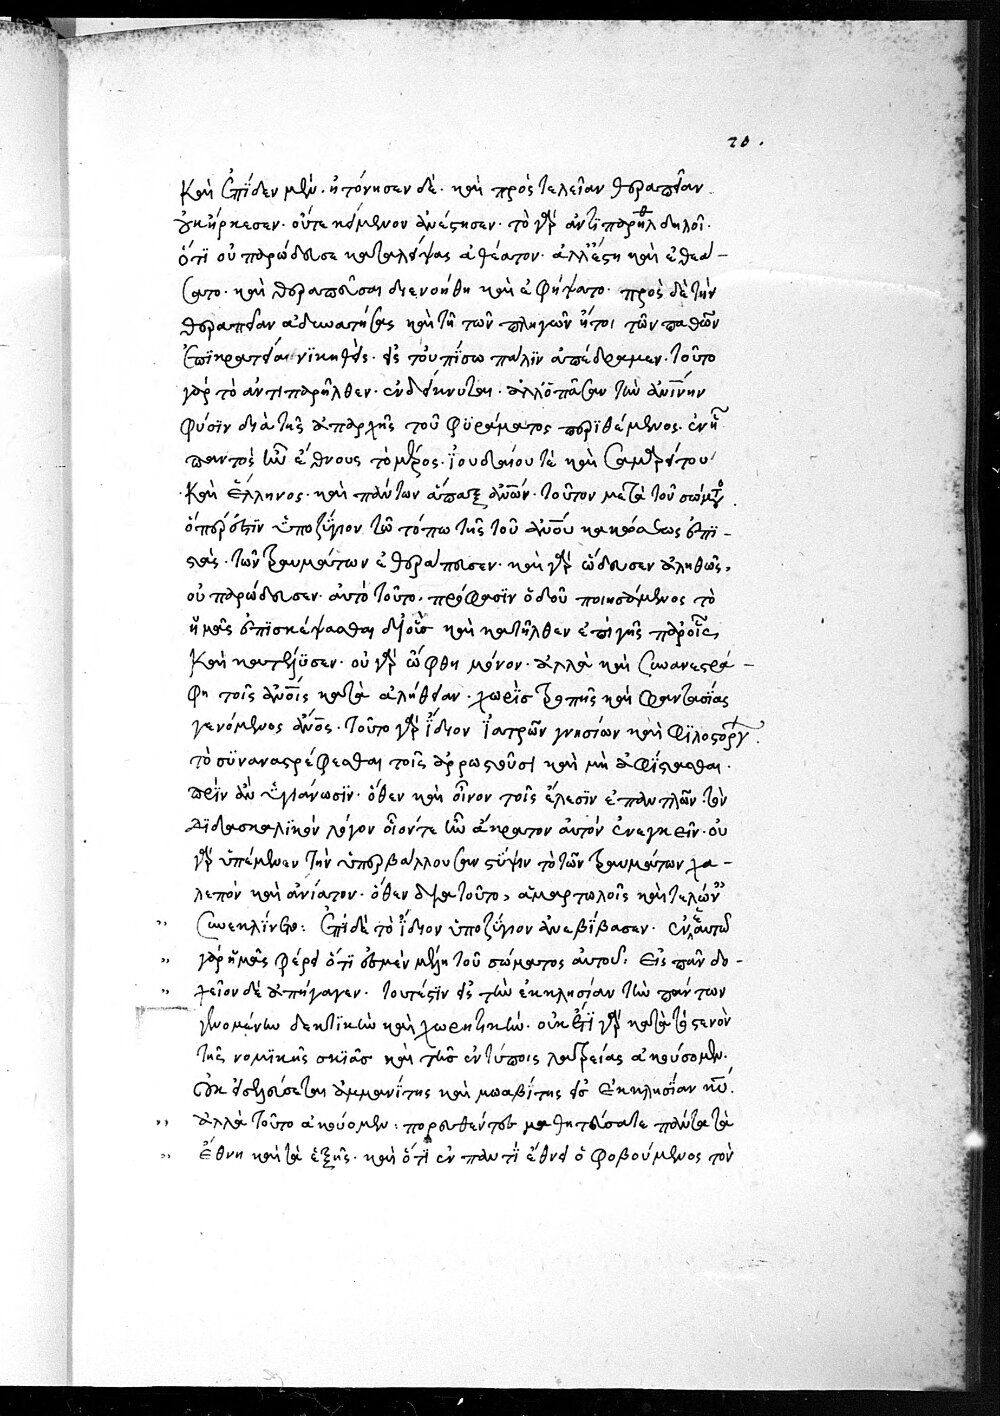 20.
Καὶ ἐπίδεν μὲν· ἠτόνησεν δὲ· καὶ πρὸς τελείαν θεραπείαν
οὐκ ἤρκεσεν· οὔτε κείμενον ἀνέστησεν· τὸ γὰρ ἀντιπαρῆλθε δηλοῖ·
ὅτι οὐ παρώδευσε καταλείψας ἀθέατον· ἀλλ' ἔστη καὶ ἐθεά-
σατο· καὶ θεραπεῦσαι διενοήθη καὶ ἐφήψατο· πρὸς δὲ τὴν
θεραπείαν ἀδυνατήσας καὶ τῆ τῶν πληγῶν ἤτοι τῶν παθῶν
ἐπικρατεία νικηθεὶς· εἰς τοὐπίσω πάλιν ἀπέδραμεν· τοῦτο
γὰρ τὸ ἀντιπαρῆλθεν· ἐνδείκνυται· ἀλλ' ὁ πᾶσαν τὴν ἀνίνην
φύσιν διὰ τῆς ἀπαρχῆς τοῦ φυράματος περιθέμενος· ἐν ἧ
παντὸς ἦν ἔθνους τὸ μέρος· ἰουδαίου τὲ καὶ σαμαρείτου
καὶ ἕλληνος· καὶ πάντων ἅπαξ ἀνῶν· τοῦτον μετὰ τοῦ σώματος
ὅπερ ἐστὶν ὑποζύγιον τῶ τόπω τῆς τοῦ ἀνου κακώσεως ἐπι-
στὰς· τῶν τραυμάτων ἐθεράπευσεν· καὶ γὰρ ὥδευσεν ἀληθῶς,
οὐ παρώδευσεν· αὐτὸ τοῦτο, πρόφασιν ὁδοῦ ποιησάμενος τὸ
ἡμᾶς ἐπισκέψασθαι δι' οὓς καὶ κατῆλθεν ἐπὶ γῆς
καὶ κατέλυσεν· οὐ γὰρ ὤφθη μόνον· ἀλλὰ καὶ συνανεστρά-
φη τοῖς ἀνοις κατὰ ἀλήθειαν· χωρὶς τροπῆς καὶ φαντασίας
γενόμενος ἀνος· τοῦτο γὰρ ἴδιον ἰατρῶν γνησίων καὶ φιλοστόργ
τὸ συναναστρέφεσθαι τοῖς ἀρρωστοῦσι καὶ μὴ ἀφίστασθαι·
πρὶν ἂν ὑγιάνωσιν· ὅθεν καὶ οἶνον τοῖς ἕλκεσιν ἐπαντλῶν· τὸν
διδασκαλικὸν λόγον οἷόν τε ἦν ἄκρατον αὐτὸν ἐνεγκεῖν· οὐ
γὰρ ὑπέμεινεν τὴν ὑπερβάλλουσαν στύψιν τὸ τῶν τραυμάτων χα-
λεπὸν καὶ ἀνίατον· ὅθεν διὰ τοῦτο, ἁμαρτωλοῖς καὶ τελών
συνεκλίνετο: Ἐπὶ δὲ τὸ ἴδιον ὑποζύγιον ἀνεβίβασεν· ἐν ἑαυτῶ
γὰρ ἡμᾶς φέρει ὅτι ἐσμὲν μέλη τοῦ σώματος αὐτοῦ: Εἰς παν δο-
χεῖον δὲ ἀπήγαγεν· τουτέστιν εἰς τὴν ἐκκλησίαν τὴν πάντων
γενομένην δεκτικὴν καὶ χωρητικὴν· οὐκ ἔτι γὰρ κατὰ τὸ στενὸν
τῆς νομικῆς σκιᾶς καὶ τῆς ἐν τύποις λατρείας ἀκούσομεν·
οὐκ εἰσελεύσεται ἀμμανίτης καὶ μωαβίτης εἰς ἐκκλησίαν κυ·
ἀλλὰ τοῦτο ἀκούομεν: πορευθέντες μαθητεύσατε πάντα τὰ
ἔθνη καὶ τὰ ἑξῆς· καὶ ὅτι ἐν παντὶ ἔθνει ὁ φοβούμενος τὸν